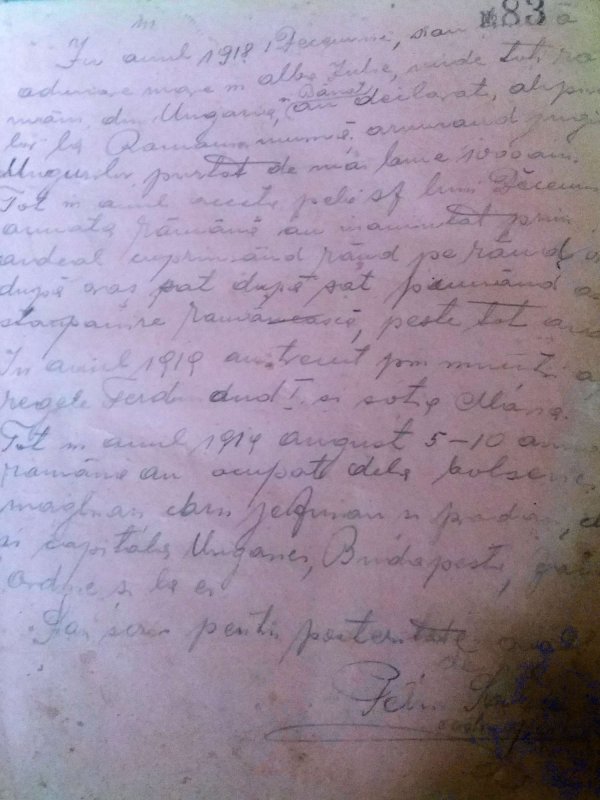 № 83
In anul 1918 1 Decemvrie, s'au
adunare mare in alba Iulie, unde toti ro
mâni din Ungaria, Banat au declarat, alipir
lor la România mumă aruncand jugu
Ungurilor purtat de mai bine 1000 ani.
Tot in anul acesta pela sf. lunii Decem
armata română au inaintat prin
ardeal cuprinzând rând pe rând
după oraș sat după sat punând
stapanire românească, peste tot
In anul 1919 au trecut prin
regele Ferdinand I. si sotia Maria.
Tot in anul 1919 august 5-10
română au ocupat dela bolsevici
maghiari cari jefuiau si pradau,
si capitala Ungariei, Budapesta,
ordine si la ei
pentru posteritate
Petru